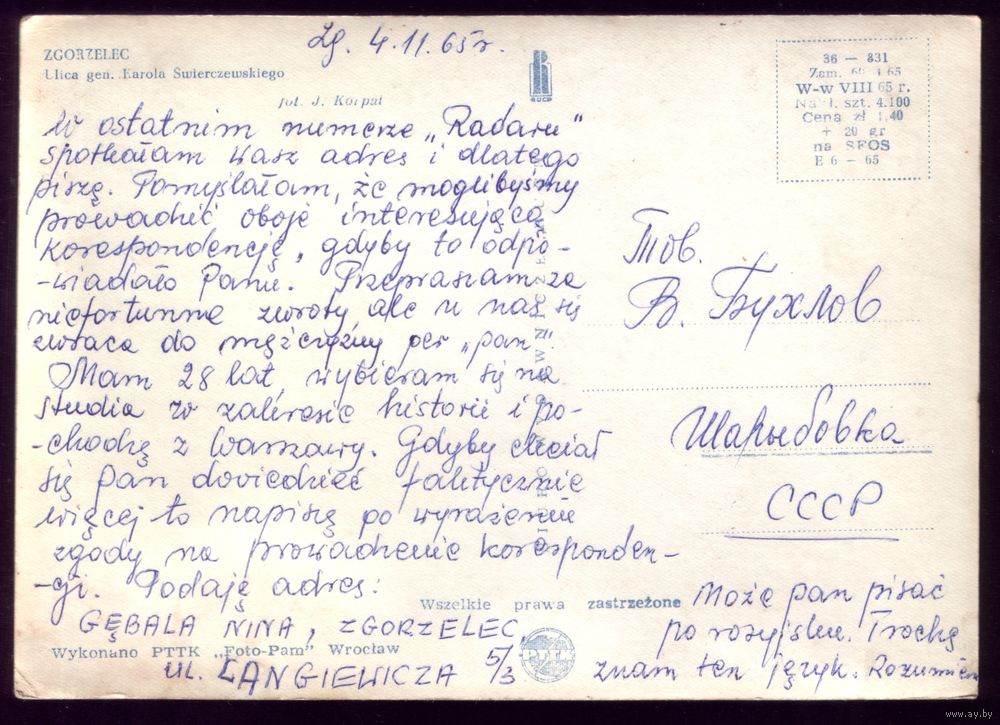 Zg. 4.11.65r.
ZGORZELEC
Ulica gen. Karola Świerczewskiego
fot. J. Korpal
RUCH
36 — 831
Zam. 65
W-w VIII 65 r.
Nakł. szt. 4.100
Cena zł 1.40
+ 20 gr
na SFOS
E 6 — 65
W ostatnim numerze „Radaru"
spotkałam wasz adres i dlatego
piszę. Pomyślałam, że moglibyśmy
prowadzić oboje interesującą
korespondencję, gdyby to odpo-
-wiadało Panu. Przepraszam za
niefortunne zwroty ale u nas się
zwraca do mężczyzny per „pan".
Mam 28 lat, wybieram się na
studia w zakresie historii i po-
-chodzę z Warszawy. Gdyby chciał
się pan dowiedzieć faktycznie
więcej to napiszę po wyrażeniu
zgody na prowadzenie koresponden-
-cji. Podaję adres:
GĘBALA NINA, ZGORZELEC
UL. LANGIEWICZA 5/3
Тов.
В. Бухлов
Шарыбовка
СССР
Wszelkie prawa zastrzeżone
Wykonano PTTK „Foto-Pam" Wrocław
PTTK
Może pan pisać
po rosyjsku. Trochę
znam ten język. Rozumiem